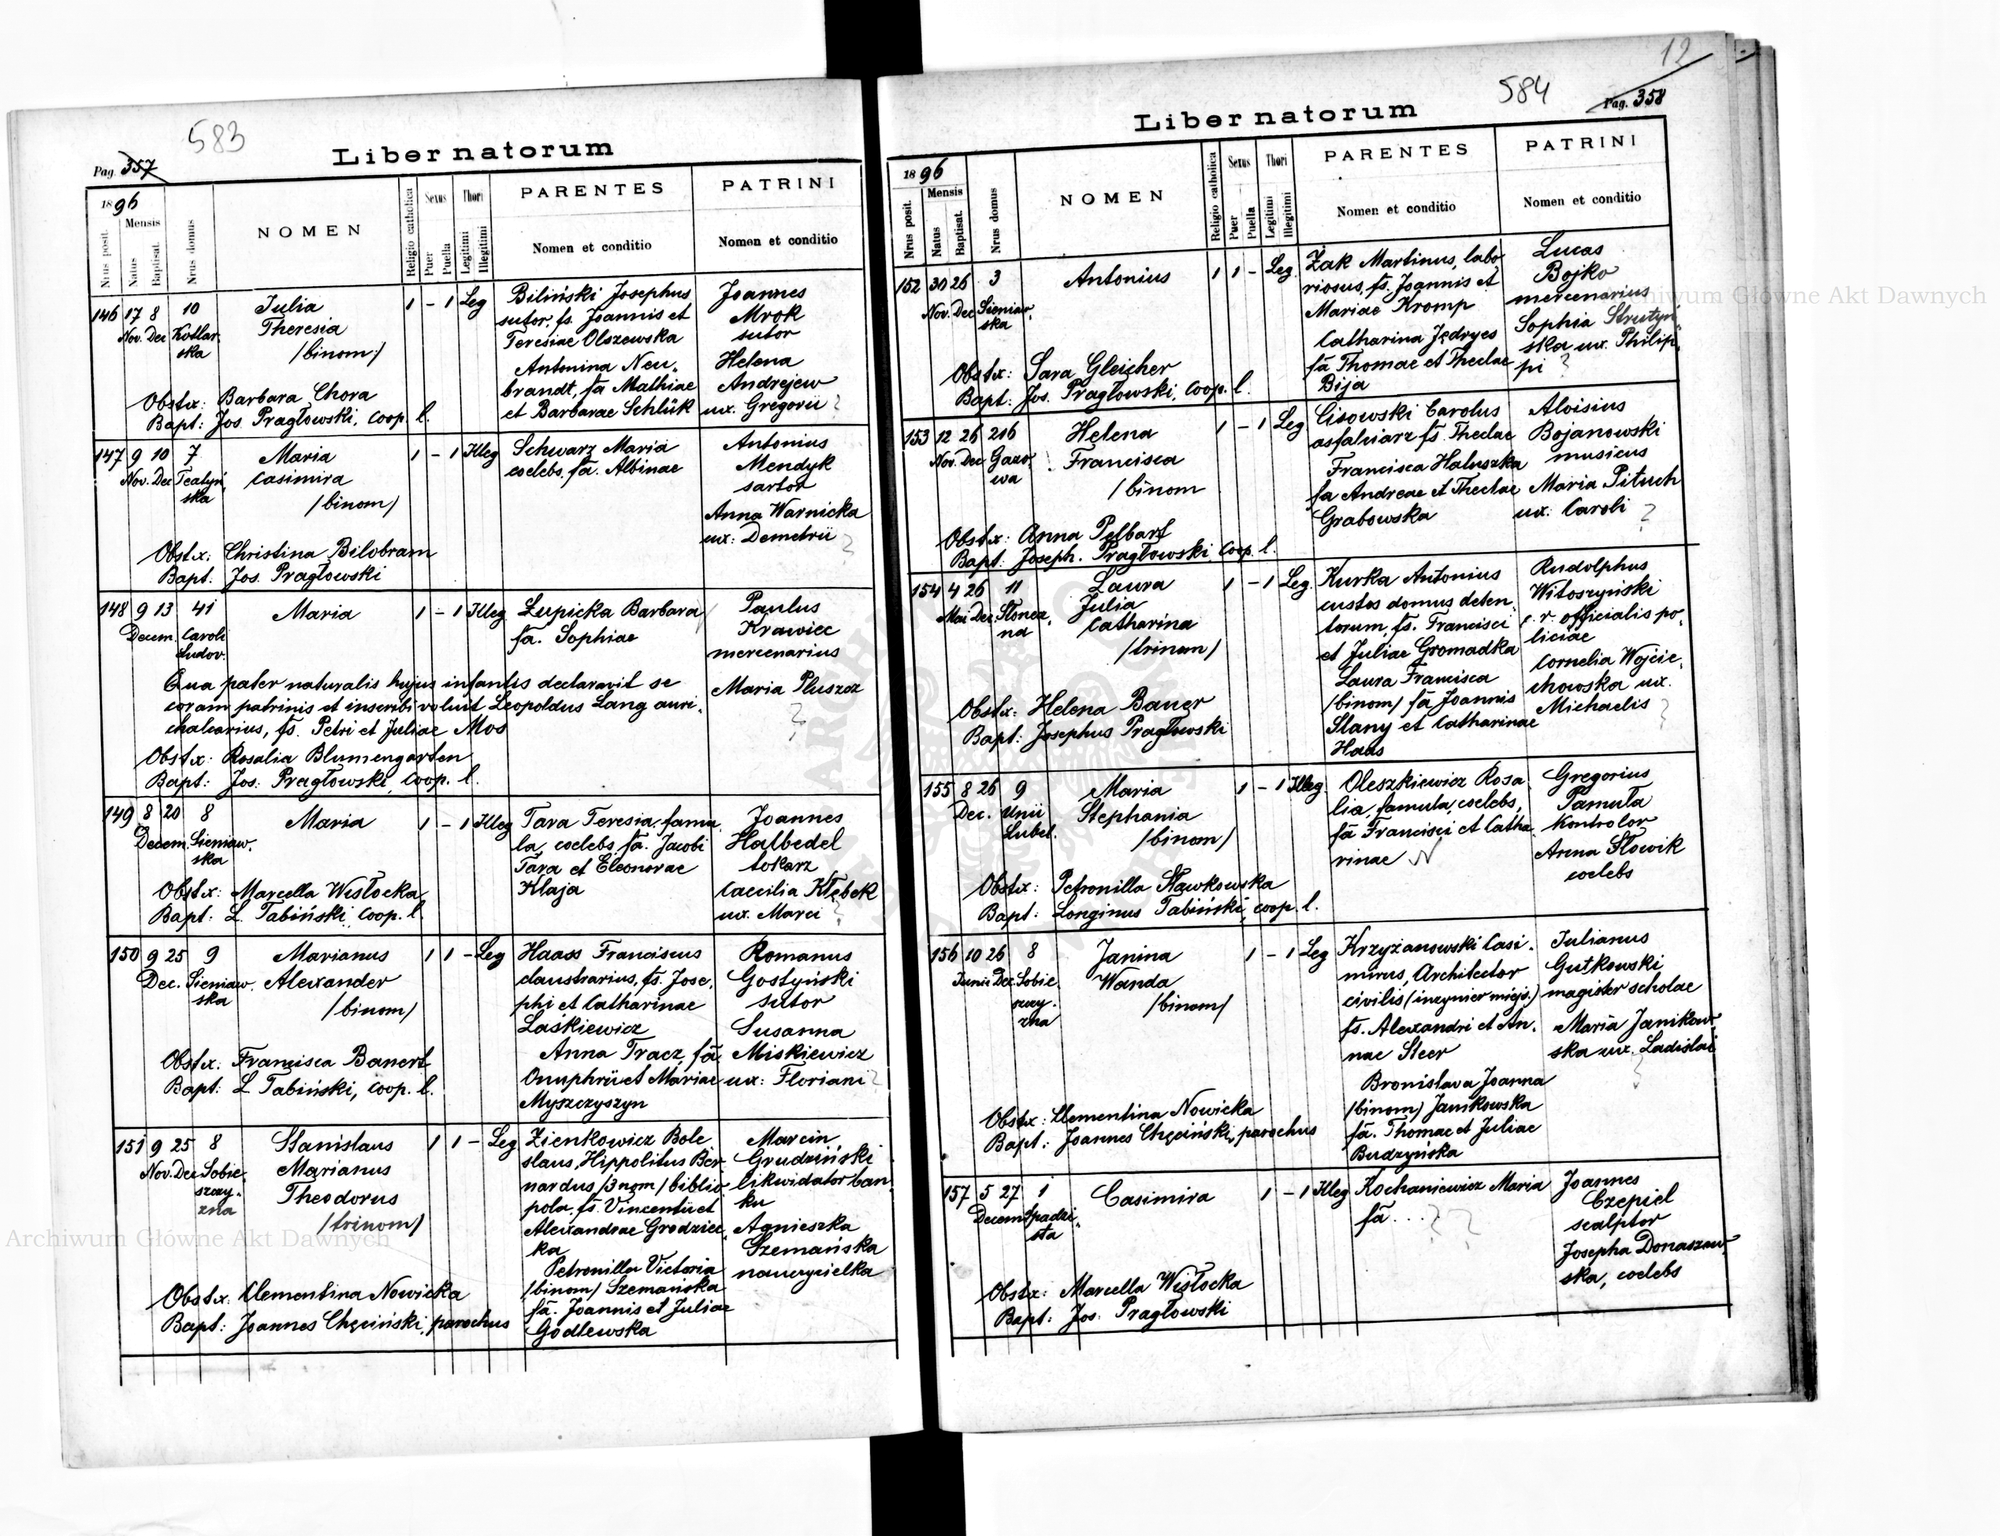 583
Pag. 357
Liber natorum
1896
Mensis
Nrus posit.
Natus
Baptisat.
Nrus domus
NOMEN
Religio catholica
Sexus
Puer
Puella
Thori
Legitimi
Illegitimi
PARENTES
Nomen et conditio
PATRINI
Nomen et conditio
146 17 8 10 Julia 1 - 1 Leg
Nov. Dec Kotlar. Theresia
ska /binom:/
Obstx: Barbara Chora
Bapt: Jos. Pragłowski, coop. l.
Biliński Josephus
sutor, fs. Joannis et
Teresiae Olszewska
Antonina Neu-
brandt, fa Mathiae
et Barbarae Schlük
Joannes
Mrok
sutor
Helena
Andrejew
ux. Gregorii ?
147 9 10 7 Maria 1 - 1 Illeg
Nov. Dec Teatyń. Casimira
ska /binom/
Obstx: Christina Bilobram
Bapt. Jos. Pragłowski
Schwarz Maria
coelebs, fa. Albinae
Antonius
Mendyk
sartor
Anna Warnicka
ux: Demetrii ?
148 9 13 41 Maria 1 - 1 Illeg
Decem. Caroli
Ludov.
Łupicka Barbara
fa. Sophiae
Paulus
Krawiec
mercenarius
Maria Pluszcz
?
Qua pater naturalis hujus infantis declaravit se
coram patrinis et inscribi voluit Leopoldus Lang auri-
chalcarius, fs. Petri et Juliae Mos
Obstx: Rosalia Blumengarten
Bapt: Jos. Pragłowski, coop. l.
149 8 20 8 Maria 1 - 1 Illeg
Decem. Sieniaw.
ska
Obstx: Marcella Wisłocka
Bapt: L. Tabiński, coop. l
Tara Teresia, famu-
la, coelebs, fa. Jacobi
Tara et Eleonorae
Klaja
Joannes
Halbedel
tokarz
Caecilia Kłębek
ux. Marci ?
150 9 25 9 Marianus 1 1 - Leg
Dec. Sieniaw. Alexander
ska /binom/
Obstx: Francisca Banert
Bapt: L Tabiński, coop. l.
Haass Franciscus
claustrarius, fs. Jose-
phi et Catharinae
Laśkiewicz
Anna Tracz, fa
Onuphrii et Mariae
Myszczyszyn
Romanus
Gostyński
sutor
Susanna
Miskiewicz
ux: Floriani ?
151 9 25 8 Stanislaus 1 1 - Leg
Nov. Dec Sobie- Marianus
szczy- Theodorus
zna /trinom/
Obstx: Clementina Nowicka
Bapt: Joannes Chęciński, parochus
Zienkowicz Bole
slaus, Hippolitus Ber-
nardus /3nom/ biblio-
pola, fs. Vincentii et
Alexandrae Grodziec-
ka
Petronilla Victoria
/binom/ Szemańska
fa. Joannis et Juliae
Godlewska
Marcin
Grudziński
likwidator ban-
ku
Agnieszka
Szemańska
nauczycielka
12
584
Pag. 358
Liber natorum
1896
Mensis
Nrus posit.
Natus
Baptisat.
Nrus domus
NOMEN
Religio catholica
Sexus
Puer
Puella
Thori
Legitimi
Illegitimi
PARENTES
Nomen et conditio
PATRINI
Nomen et conditio
152 30 26 3 Antonius 1 1 - Leg
Nov. Dec Sieniaw.
ska
Obstx: Sara Gleicher
Bapt: Jos. Pragłowski, coop. l.
Żak Martinus, labo
riosus, fs. Joannis et
Mariae Kromp
Catharina Jędryes
fa Thomae et Theclae
Bija
Lucas
Bojko
mercenarius
Sophia Strutyń-
ska ux. Philip-
pi ?
153 12 26 216 Helena 1 - 1 Leg
Nov. Dec Gazo- Francisca
wa /binom
Obstx: Anna Pelbart
Bapt: Joseph. Pragłowski, coop. l.
Cisowski Carolus
asfalciarz fs. Theclae
Francisca Haluszka
fa Andreae et Theclae
Grabowska
Aloisius
Bojanowski
musicus
Maria Pituch
ux: Caroli ?
154 4 26 11 Laura 1 - 1 Leg.
Mai Dec. Słonecz. Julia
na Catharina
/trinom/
Obstx: Helena Bauer
Bapt: Josephus Pragłowski
Kurka Antonius
custos domus deten-
torum, fs. Francisci
et Juliae Gromadka
Laura Francisca
/binom/ fa Joannis
Slany et Catharinae
Haas
Rudolphus
Witoszyński
c. r. officialis po-
liciae
Cornelia Wojcie-
chowska ux.
Michaelis ?
155 8 26 9 Maria 1 - 1 Illeg
Dec. Unii Stephania
Lubel. /binom/
Obstx: Petronilla Sławkowska
Bapt: Longinus Tabiński, coop. l.
Oleszkiewicz Rosa
lia, famula, coelebs,
fa Francisci et Catha
rinae
Gregorius
Pamuła
Kontrolor
Anna Słowik
coelebs
156 10 26 8 Janina 1 - 1 Leg
Junii Dec Sobie Wanda
szczy- /binom/
zna
Obstx: Clementina Nowicka
Bapt: Joannes Chęciński, parochus
Krzyżanowski Casi-
mirus, Architector
civilis /inzynier miejs./
fs. Alexandri et An-
nae Steer
Bronislava Joanna
/binom/ Janikowska
fa. Thomae et Juliae
Budzyńska
Julianus
Gutkowski
magister scholae
Maria Janikow-
ska ux. Ladislai
?
157 5 27 1 Casimira 1 - 1 Illeg
Decem Spadzi-
sta
Obstx: Marcella Wisłocka
Bapt: Jos. Pragłowski
Kochaniewicz Maria
fa . . . ? ?
Joannes
Czepiel
sculptor
Josepha Donaszew
ska, coelebs
Archiwum Główne Akt Dawnych
Archiwum Główne Akt Dawnych